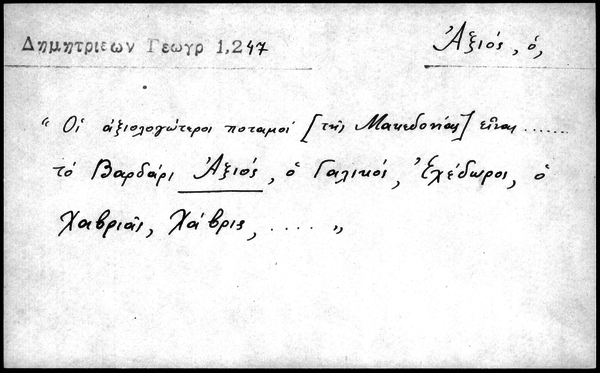 Δημητριεων Γεωγρ 1,247
Ἀξιός, ὁ,
“ Οἱ ἀξιολογώτεροι ποταμοί [τῆς Μακεδονίας] εἶναι ......
τό Βαρδάρι Ἀξιός, ὁ Γαλικός, Ἐχέδωρος, ὁ
Χαβριᾶς, Χάβρις, ..... „